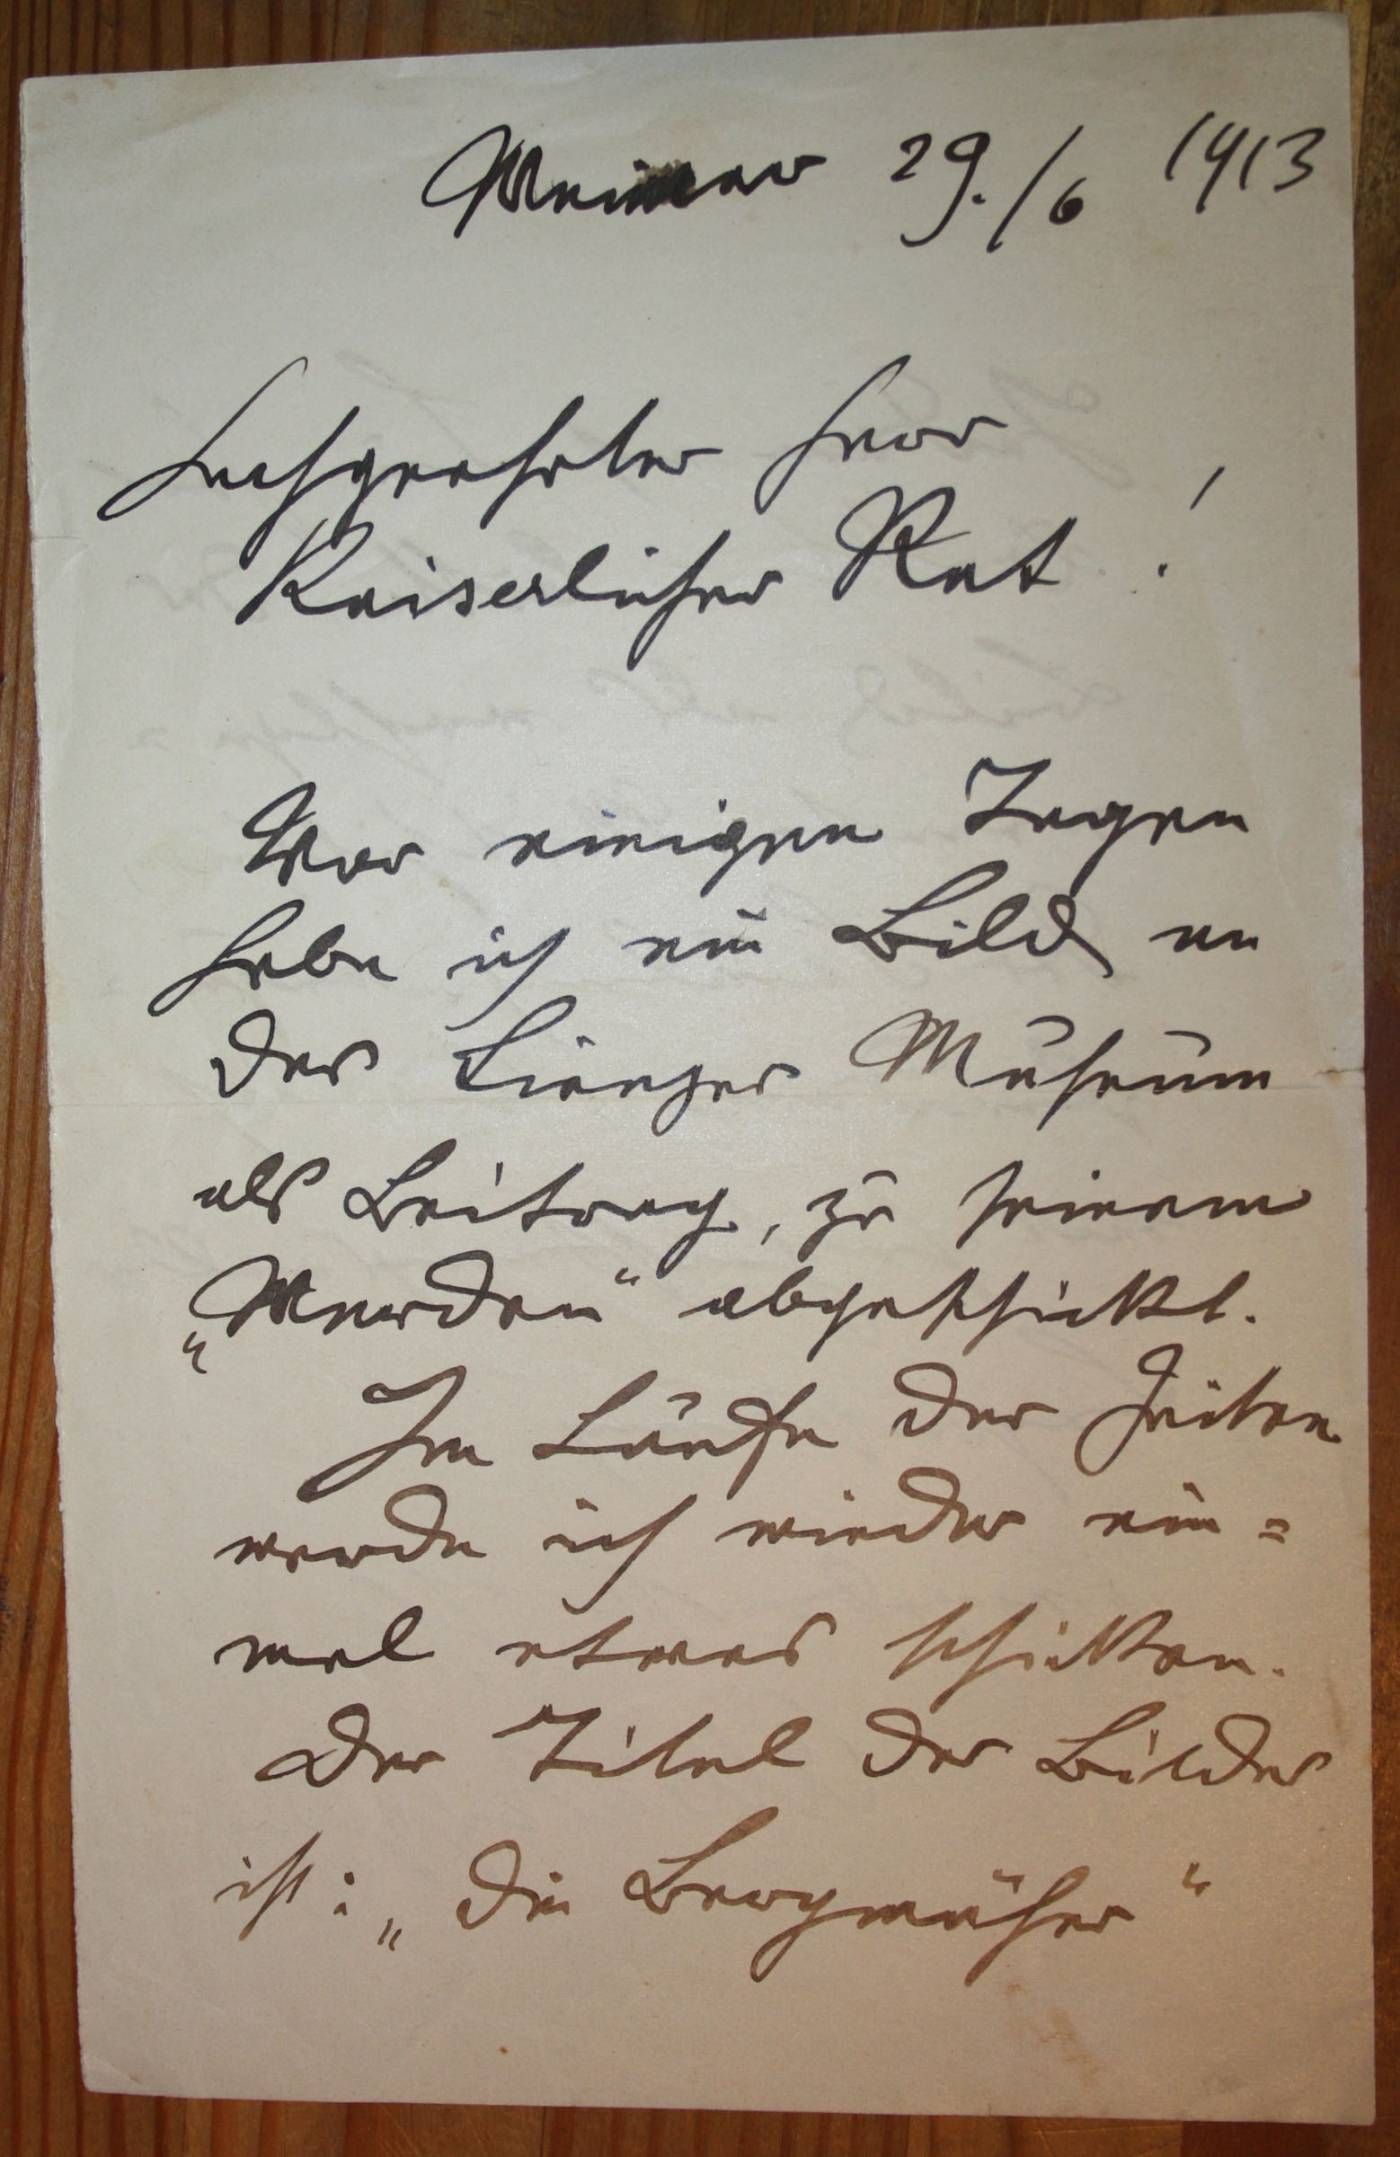 Weimar 29./6 1913
Hochgeehrter Herr
Kaiserlicher Rat !
Vor einigen Tagen
habe ich ein Bild an
das Lienzer Museum
als Beitrag, zu seinem
„Werden“ abgeschickt.
Im Laufe der Zeiten
werde ich wieder ein=
mal etwas schicken.
Der Titel des Bildes
ist: „Die Bergmäher“